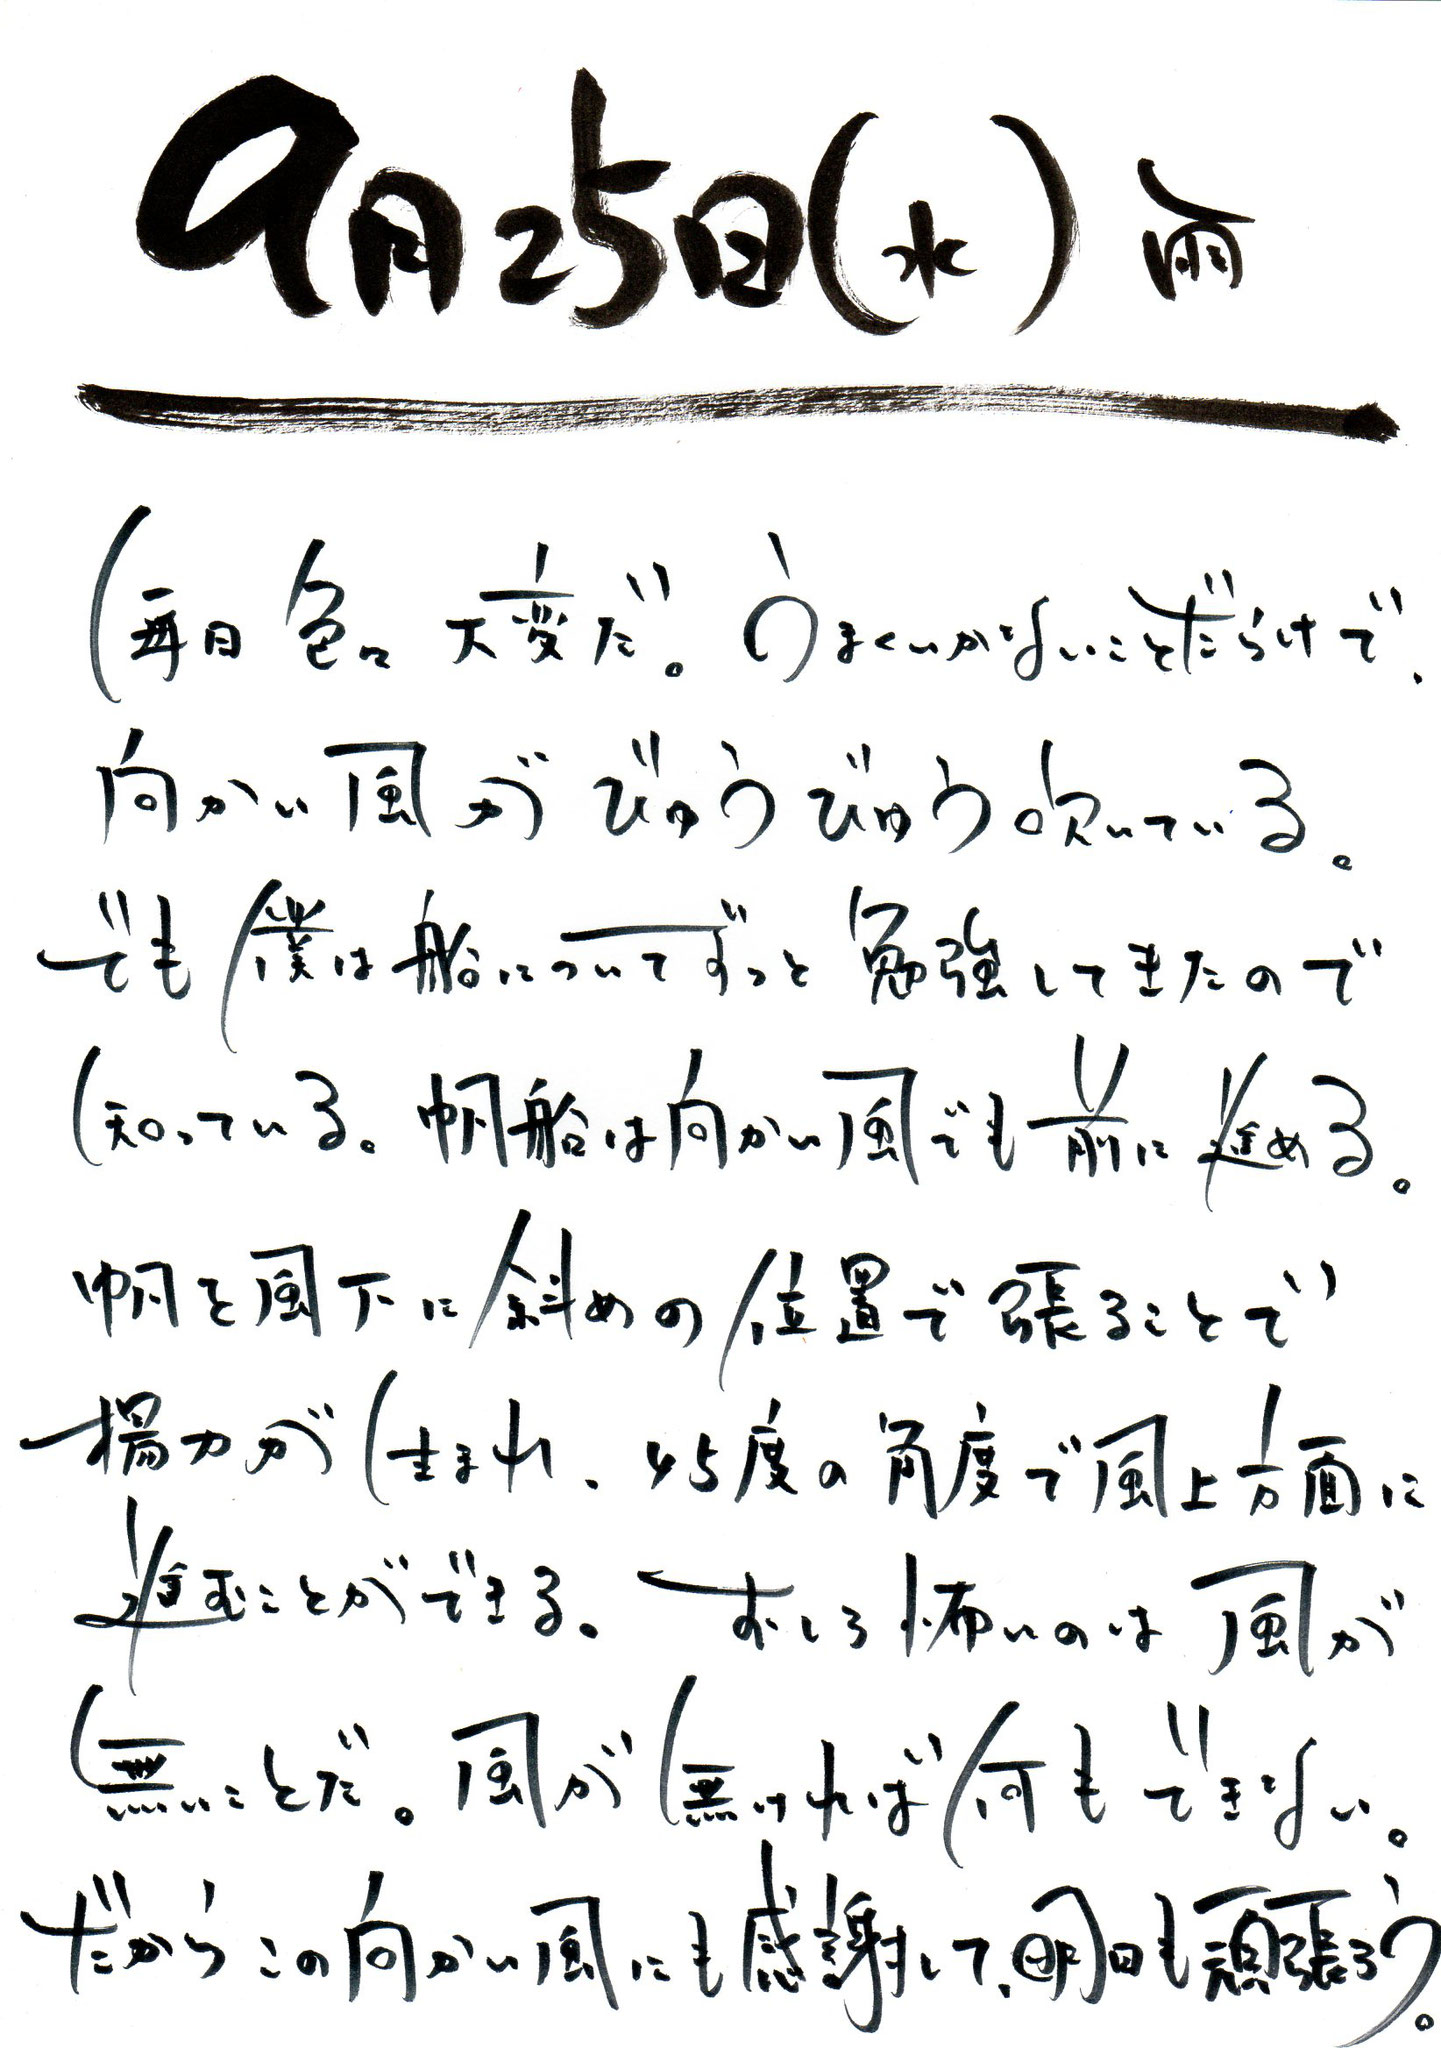 9月25日(水) 雨
毎日色々大変だ。うまくいかないことだらけで、
向かい風がびゅうびゅう吹いている。
でも僕は船についてずっと勉強してきたので
知っている。帆船は向かい風でも前に進める。
帆を風下に斜めの位置で張ることで
揚力が生まれ、45度の角度で風上方面に
進むことができる。むしろ怖いのは風が
無いことだ。風が無ければ何もできない。
だからこの向かい風にも感謝して、明日も頑張ろう。